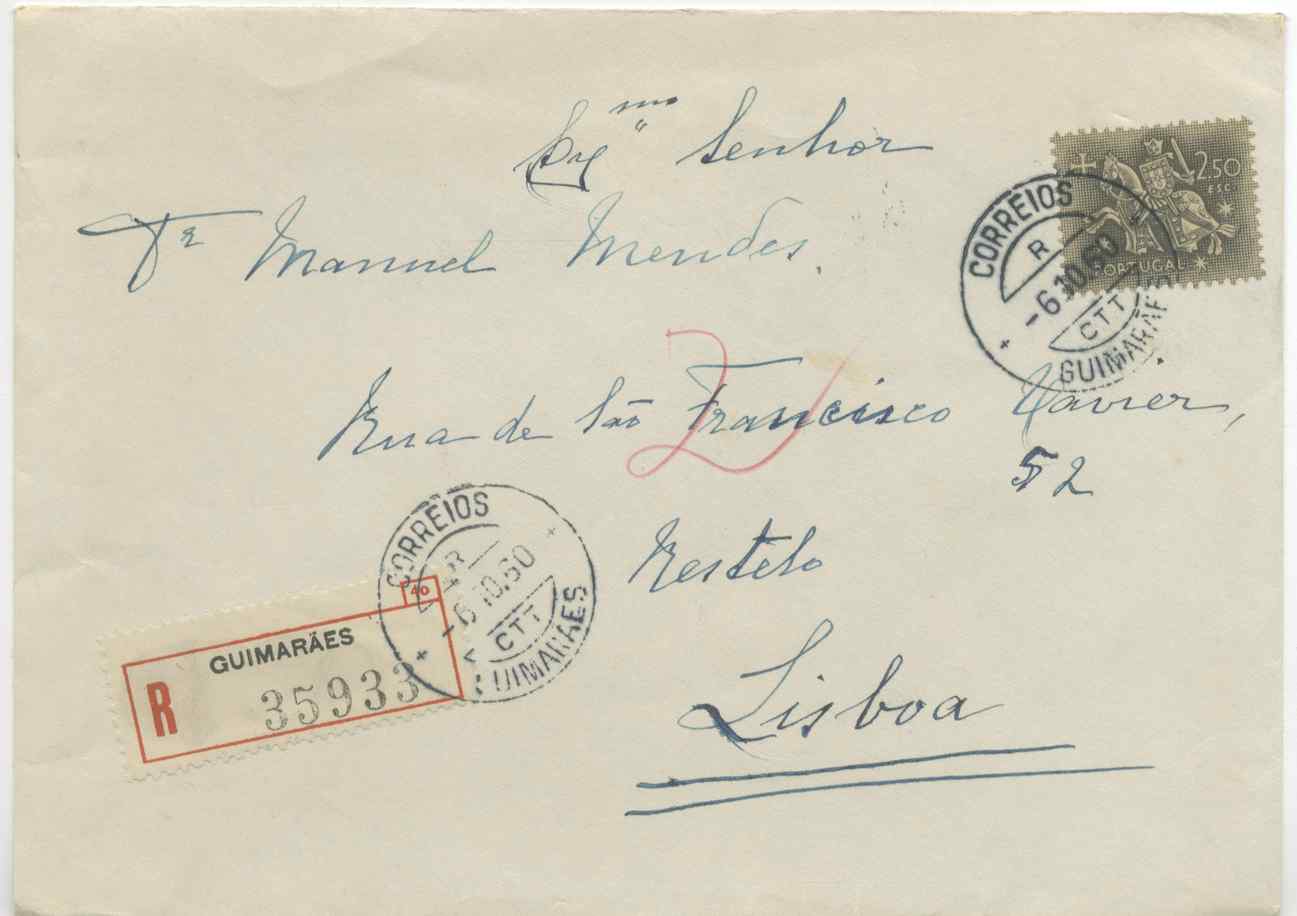 Exmo Senhor
Dr Manuel Mendes.
Rua de São Francisco Xavier,
52
Restelo
Lisboa
2,50
ESC.
PORTUGAL
CORREIOS
R R
-6.10.60
CTT
GUIMARÃES
2
CORREIOS
R
-6.10.60
CTT
GUIMARÃES
40
GUIMARÃES
R 35933